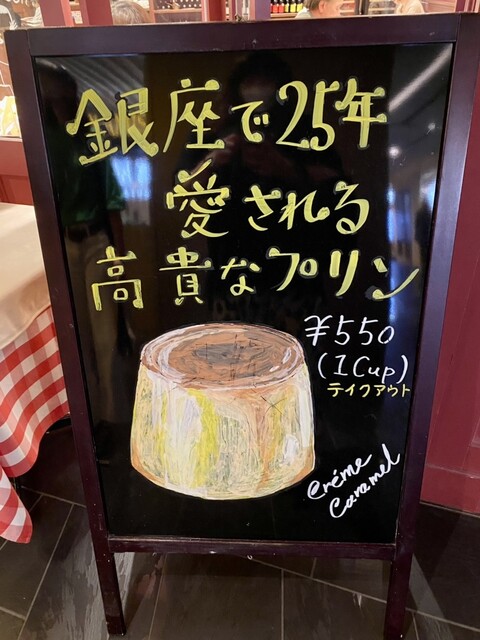 銀座で25年
愛される
高貴なプリン
¥550
(1Cup)
テイクアウト
Créme
Caramel